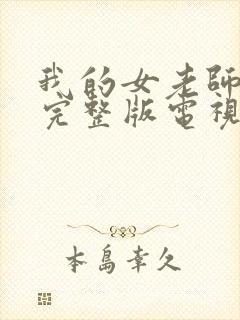 我的女老師
完整版電視
本島幸久